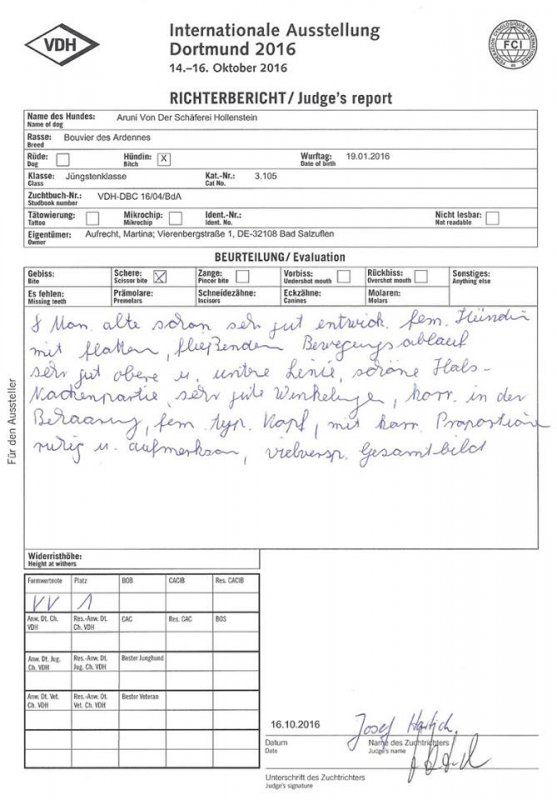 VDH
Internationale Ausstellung
Dortmund 2016
14.–16. Oktober 2016
FCI
RICHTERBERICHT / Judge's report
Name des Hundes: Aruni Von Der Schäferei Hollenstein
Name of dog
Rasse: Bouvier des Ardennes
Breed
Rüde: Hündin: X Wurftag: 19.01.2016
Dog Bitch Date of birth
Klasse: Jüngstenklasse Kat.-Nr.: 3.105
Class Cat No.
Zuchtbuch-Nr.: VDH-DBC 16/04/BdA
Studbook number
Tätowierung: Mikrochip: Ident.-Nr.: Nicht lesbar:
Tattoo Mikrochip Ident. No. Not readable
Eigentümer: Aufrecht, Martina; Vierenbergstraße 1, DE-32108 Bad Salzuflen
Owner
BEURTEILUNG / Evaluation
Gebiss: Schere: X Zange: Vorbiss: Rückbiss: Sonstiges:
Bite Scissor bite Pincer bite Undershot mouth Overshot mouth Anything else
Es fehlen: Prämolare: Schneidezähne: Eckzähne: Molaren:
Missing teeth Premolars Incisors Canines Molars
8 Mon. alte schon sehr gut entwick. fem. Hündin
mit flotten, fließenden Bewegungsablauf
sehr gut obere u. untere Linie, schöne Hals-
Nackenpartie, sehr gute Winkelunge, korr. in der
Behaarung, fem. typ. Kopf, mit korr. Proportion
ruhig u. aufmerksam, vielversp. Gesamtbild
Für den Aussteller
Widerristhöhe:
Height at withers
Formwertnote Platz BOB CACIB Res. CACIB
VV 1
Anw. Dt. Ch. VDH Res.-Anw. Dt. Ch. VDH CAC Res. CAC BOS
Anw. Dt. Jug. Ch. VDH Res.-Anw. Dt. Jug. Ch. VDH Bester Junghund
Anw. Dt. Vet. Ch. VDH Res.-Anw. Dt. Vet. Ch. VDH Bester Veteran
16.10.2016 Josef
Datum Name des Zuchtrichters
Date Judge's name
Unterschrift des Zuchtrichters
Judge's signature